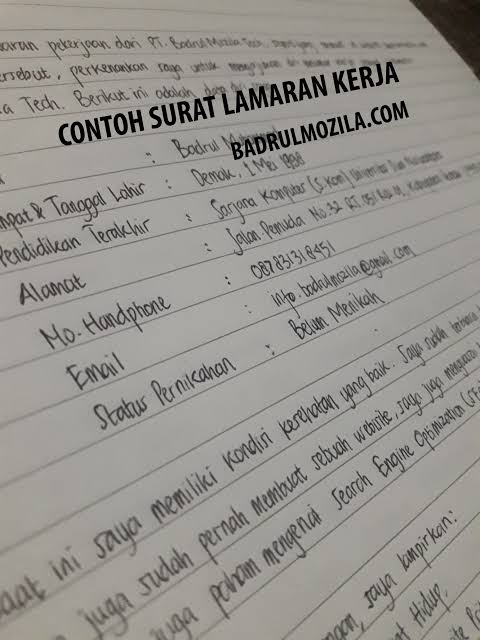 aran pekerjaan dari PT. Badrul Mozila Tech.
ersebut, perkenankan saya untuk
a Tech. Berikut ini adalah data diri
CONTOH SURAT LAMARAN KERJA
BADRULMOZILA.COM
: Badrul
mpat & Tanggal Lahir : Demak, 1 Mei 1998
Pendidikan Terakhir : Sarjana Komputer (S.Kom) Universitas Dian
Alamat : Jalan Pemuda No. 32 RT.
No. Handphone : 087831318451
Email : info.badrulmozila@gmail.com
Status Pernikahan : Belum Menikah
aat ini saya memiliki kondisi kesehatan yang baik. Saya sudah
juga sudah pernah membuat sebuah website, saya juga
juga paham mengenai Search Engine Optimization
saya lampirkan:
Hidup.